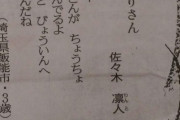 りさん
佐々木 凛人
んが ちょうちょ
んでるよ
と びょういんへ
んだね
(埼玉県飯能市・3歳